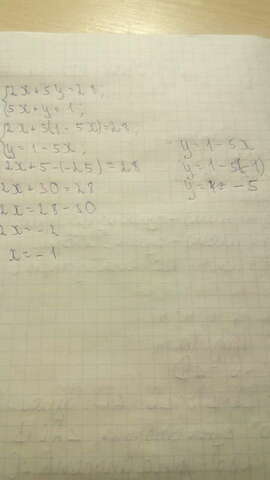 {2x+5y=28;
{5x+y=1;
{2x+5(1-5x)=28;
{y=1-5x;
2x+5-(-25)=28
2x+30=28
2x=28-30
2x=-2
x=-1
y=1-5x
y=1-5(-1)
y= = -5